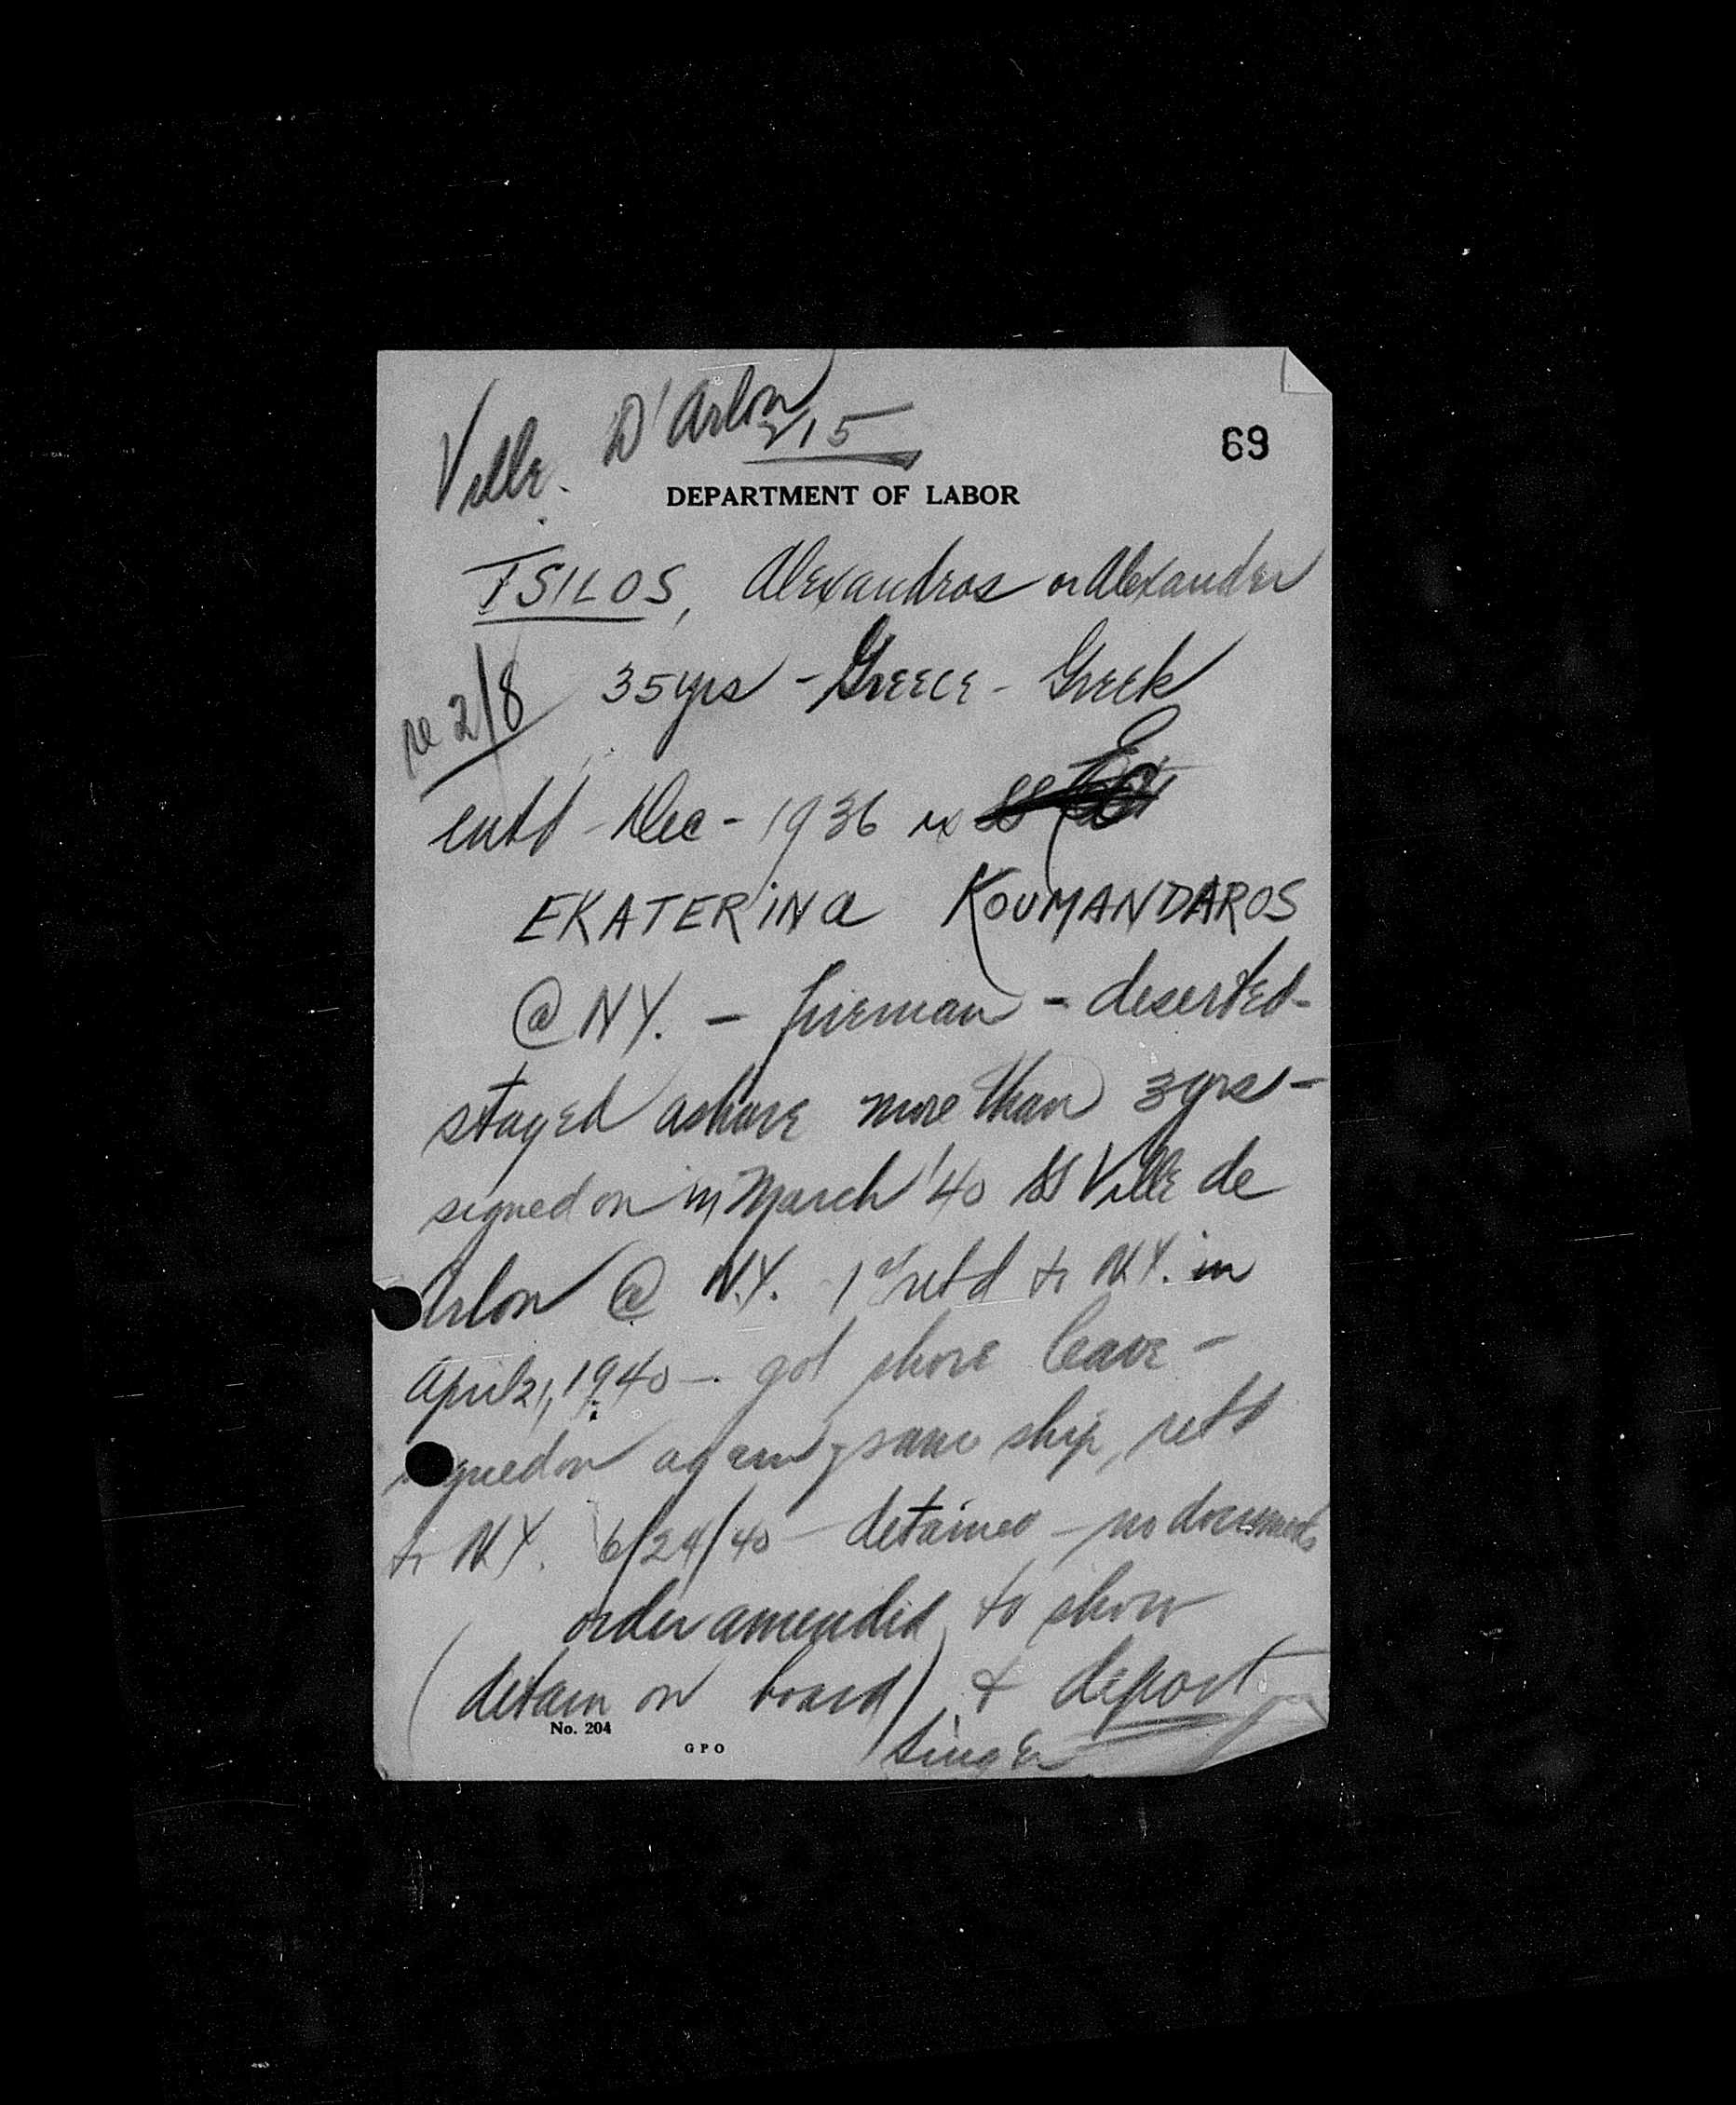 Ville D'Arlon
215
69
DEPARTMENT OF LABOR
TSILOS, Alexandros or Alexander
re 2/8
35 yrs - Greece - Greek
entd - Dec - 1936 ex
EKATERINa KOUMANDAROS
@ N.Y. - fireman - deserted -
stayed ashore more than 3 yrs -
signed on in March '40 SS Ville de
Arlon @ N.Y. 1st retd to N.Y. in
April 21, 1940 - got shore leave -
signed on again same ship, retd
to N.Y. 6/24/40 - detained - no documents
order amended to show
(detain on board) & deport
Singer
No. 204
GPO